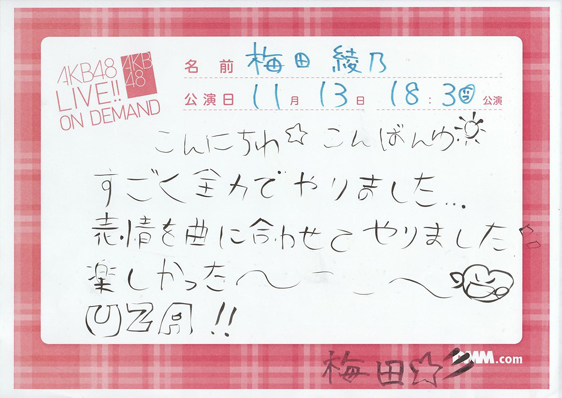 AKB48
LIVE!!
ON DEMAND
AKB
48
名前 梅田 綾乃
公演日 11月 13日 18:30 公演
こんにちわ☆ こんばんわ
すごく全力でやりました...
表情を曲に合わせてやりました
楽しかった〜
UZA!!
梅田☆彡
DMM.com